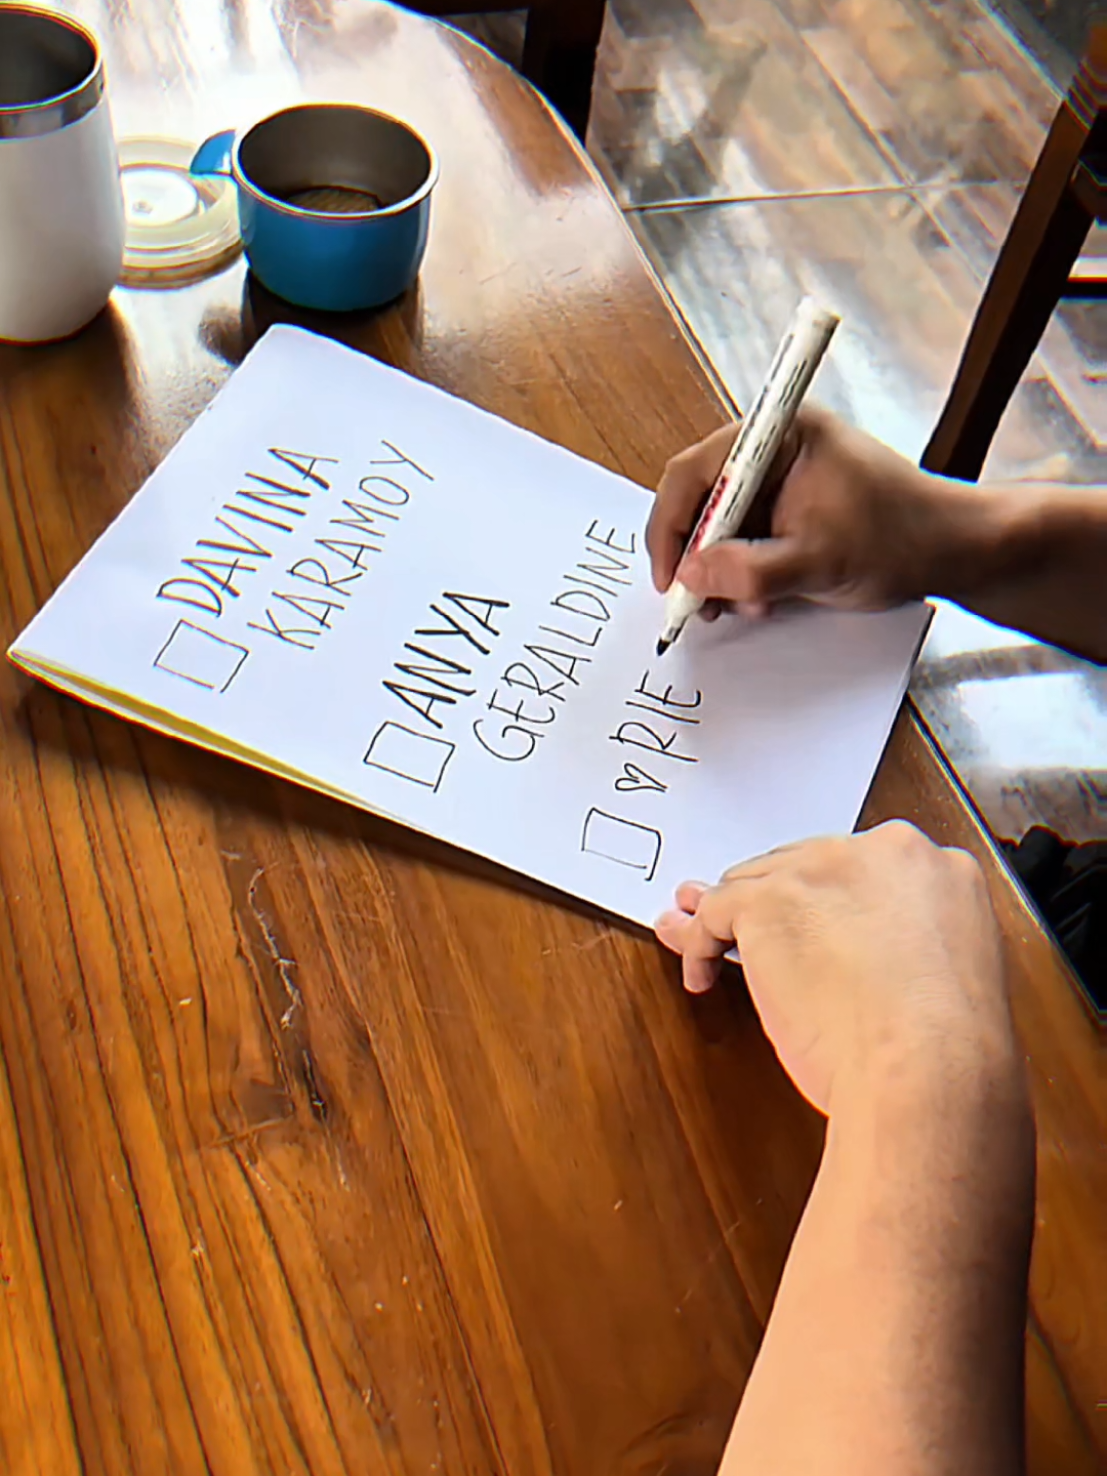 DAVINA
KARAMOY
ANYA
GERALDINE
♡ RIE